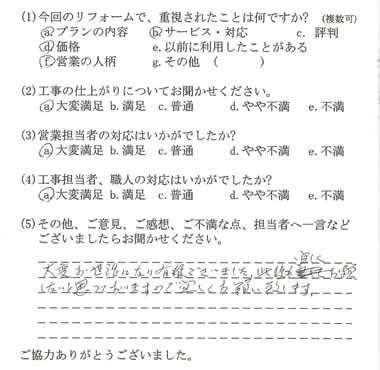 (1)今回のリフォームで、重視されたことは何ですか? (複数可)
a.プランの内容 b.サービス・対応 c. 評判
d.価格 e.以前に利用したことがある
f.営業の人柄 g.その他 ( )
(2)工事の仕上がりについてお聞かせください。
a.大変満足 b.満足 c.普通 d.やや不満 e.不満
(3)営業担当者の対応はいかがでしたか?
a.大変満足 b.満足 c.普通 d.やや不満 e.不満
(4)工事担当者、職人の対応はいかがでしたか?
a.大変満足 b.満足 c.普通 d.やや不満 e.不満
(5)その他、ご意見、ご感想、ご不満な点、担当者へ一言など
ございましたらお聞かせください。
大変お世話になり有難うございました。お願い
したいと思っておりますので宜しくお願い致します。
ご協力ありがとうございました。